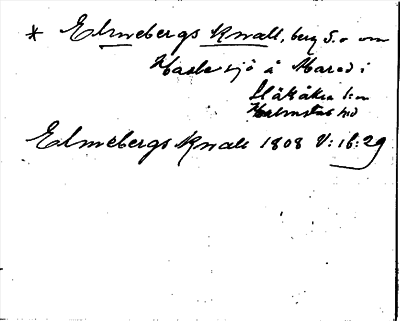 * Elmebergs Knall, berg S.o om
Hasle sjö å Mared i
Slättåkra s:n
Halmstad hd
Elmebergs Knall 1808 V:16:29